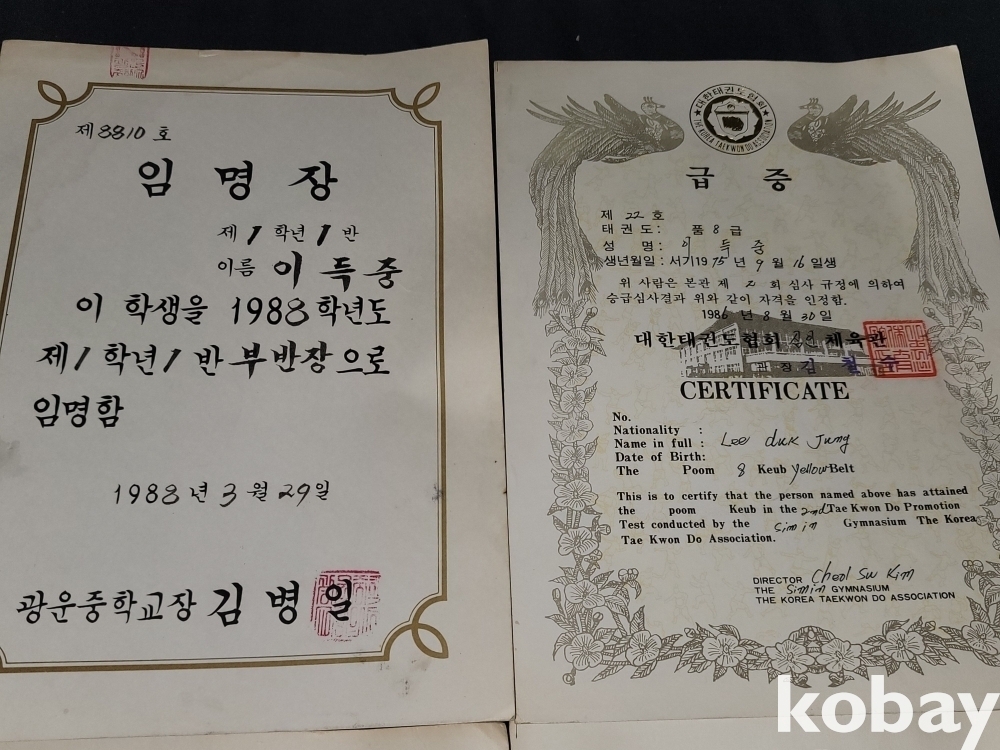 제8810호
임명장
제1학년1반
이름 이득중
이 학생을 1988학년도
제1학년1반 부반장으로
임명함
1988년 3월 29일
광운중학교장 김병일
대한태권도협회
THE KOREA TAEKWON DO ASSOCIATION
급증
제 22 호
태권도: 품 8 급
성 명: 이득중
생년월일: 서기1975년 9월 16일생
위 사람은 본관 제 2 회 심사 규정에 의하여
승급심사결과 위와 같이 자격을 인정함.
1986년 8월 30일
대한태권도협회 체육관
관장 김철수
CERTIFICATE
No.
Nationality :
Name in full : Lee duk Jung
Date of Birth:
The Poom 8 Keub Yellow Belt
This is to certify that the person named above has attained
the poom Keub in the 2nd Tae Kwon Do Promotion
Test conducted by the Simin Gymnasium The Korea
Tae Kwon Do Association.
DIRECTOR Cheol Su Kim
THE Simin GYMNASIUM
THE KOREA TAEKWON DO ASSOCIATION
kobay